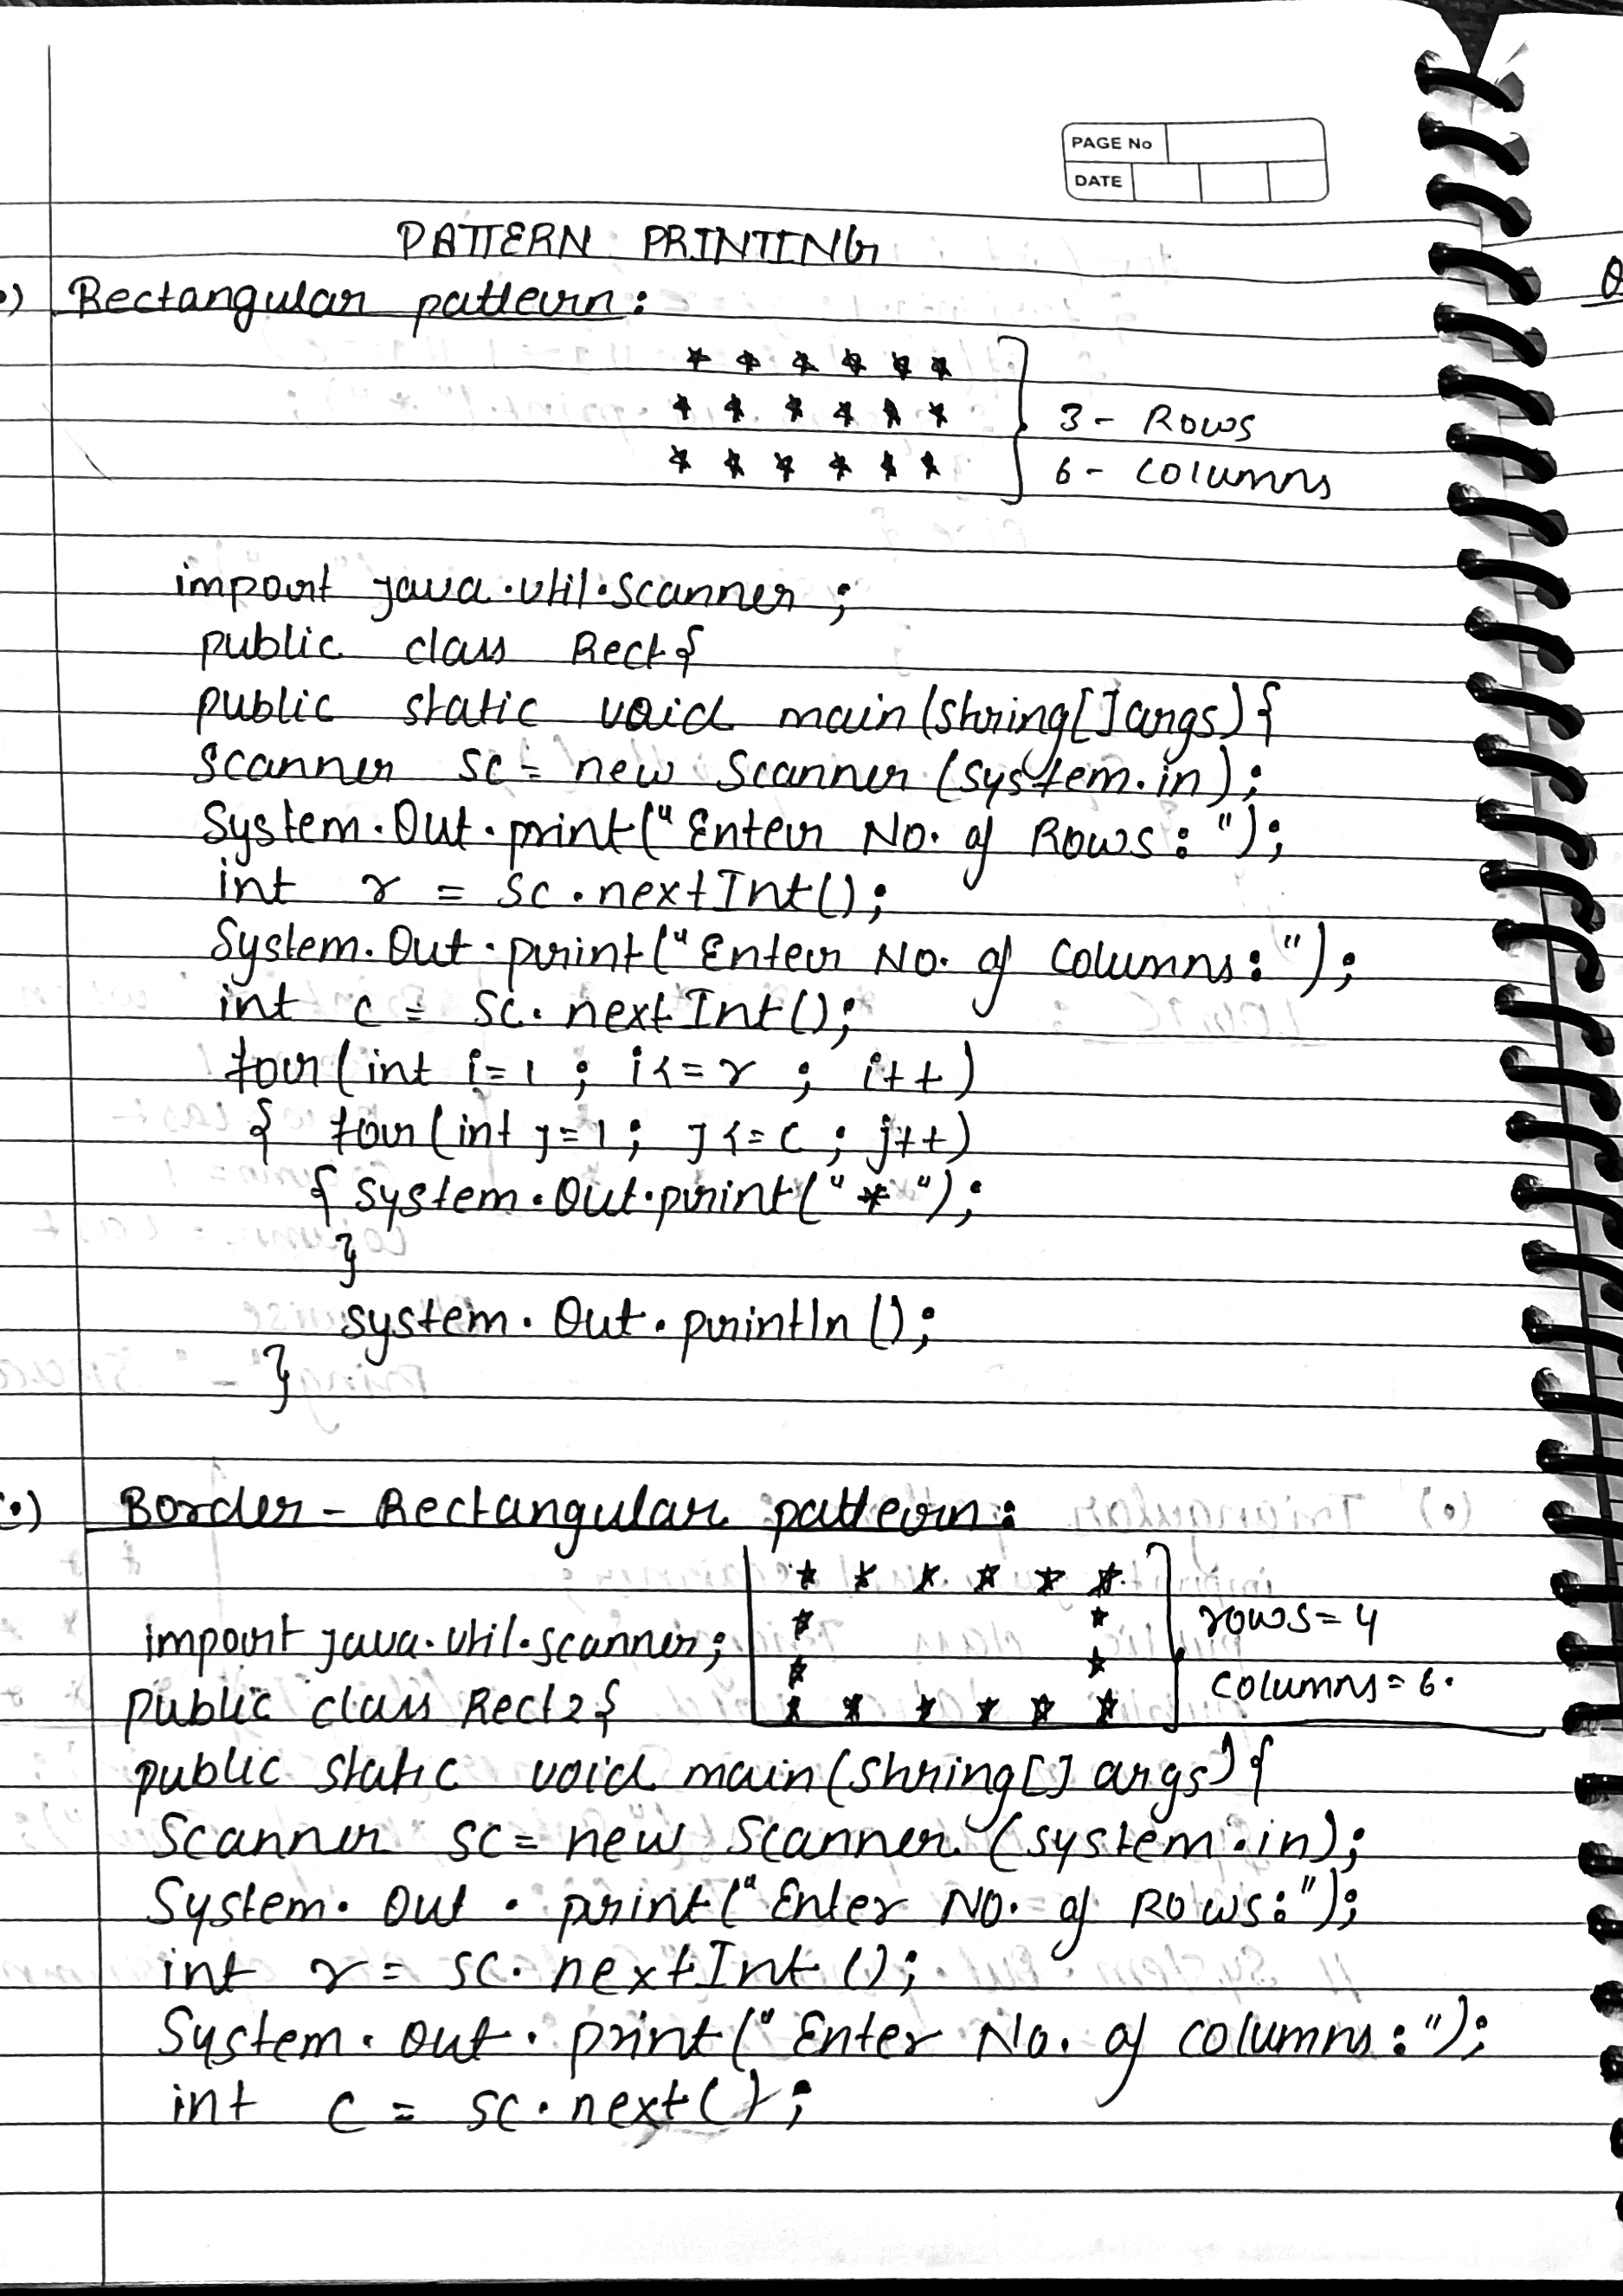 PAGE No
DATE
PATTERN PRINTING
•) Rectangular pattern:
* * * * * *
* * * * * * 3 - Rows
* * * * * * 6 - columns
import java.util.scanner;
public class Rect{
public static void main(string[]args){
Scanner sc = new Scanner(system.in);
System.Out.print("Enter No. of Rows: ");
int r = sc.nextInt();
System.Out.print("Enter No. of Columns:");
int c = sc.nextInt();
for(int i=1 ; i<=r ; i++)
{ for(int j=1; j<=c; j++)
{ system.Out.print("*");
}
system.Out.println();
}
•) Border - Rectangular pattern:
* * * * * *
* * rows=4
import java.util.scanner;
* * columns=6.
public class Rect2{
* * * * * *
public static void main(string[] args){
Scanner sc = new Scanner(system.in);
System.out.print("Enter No. of Rows:");
int r = sc.nextInt();
System.out.print("Enter No. of columns:");
int c = sc.next();